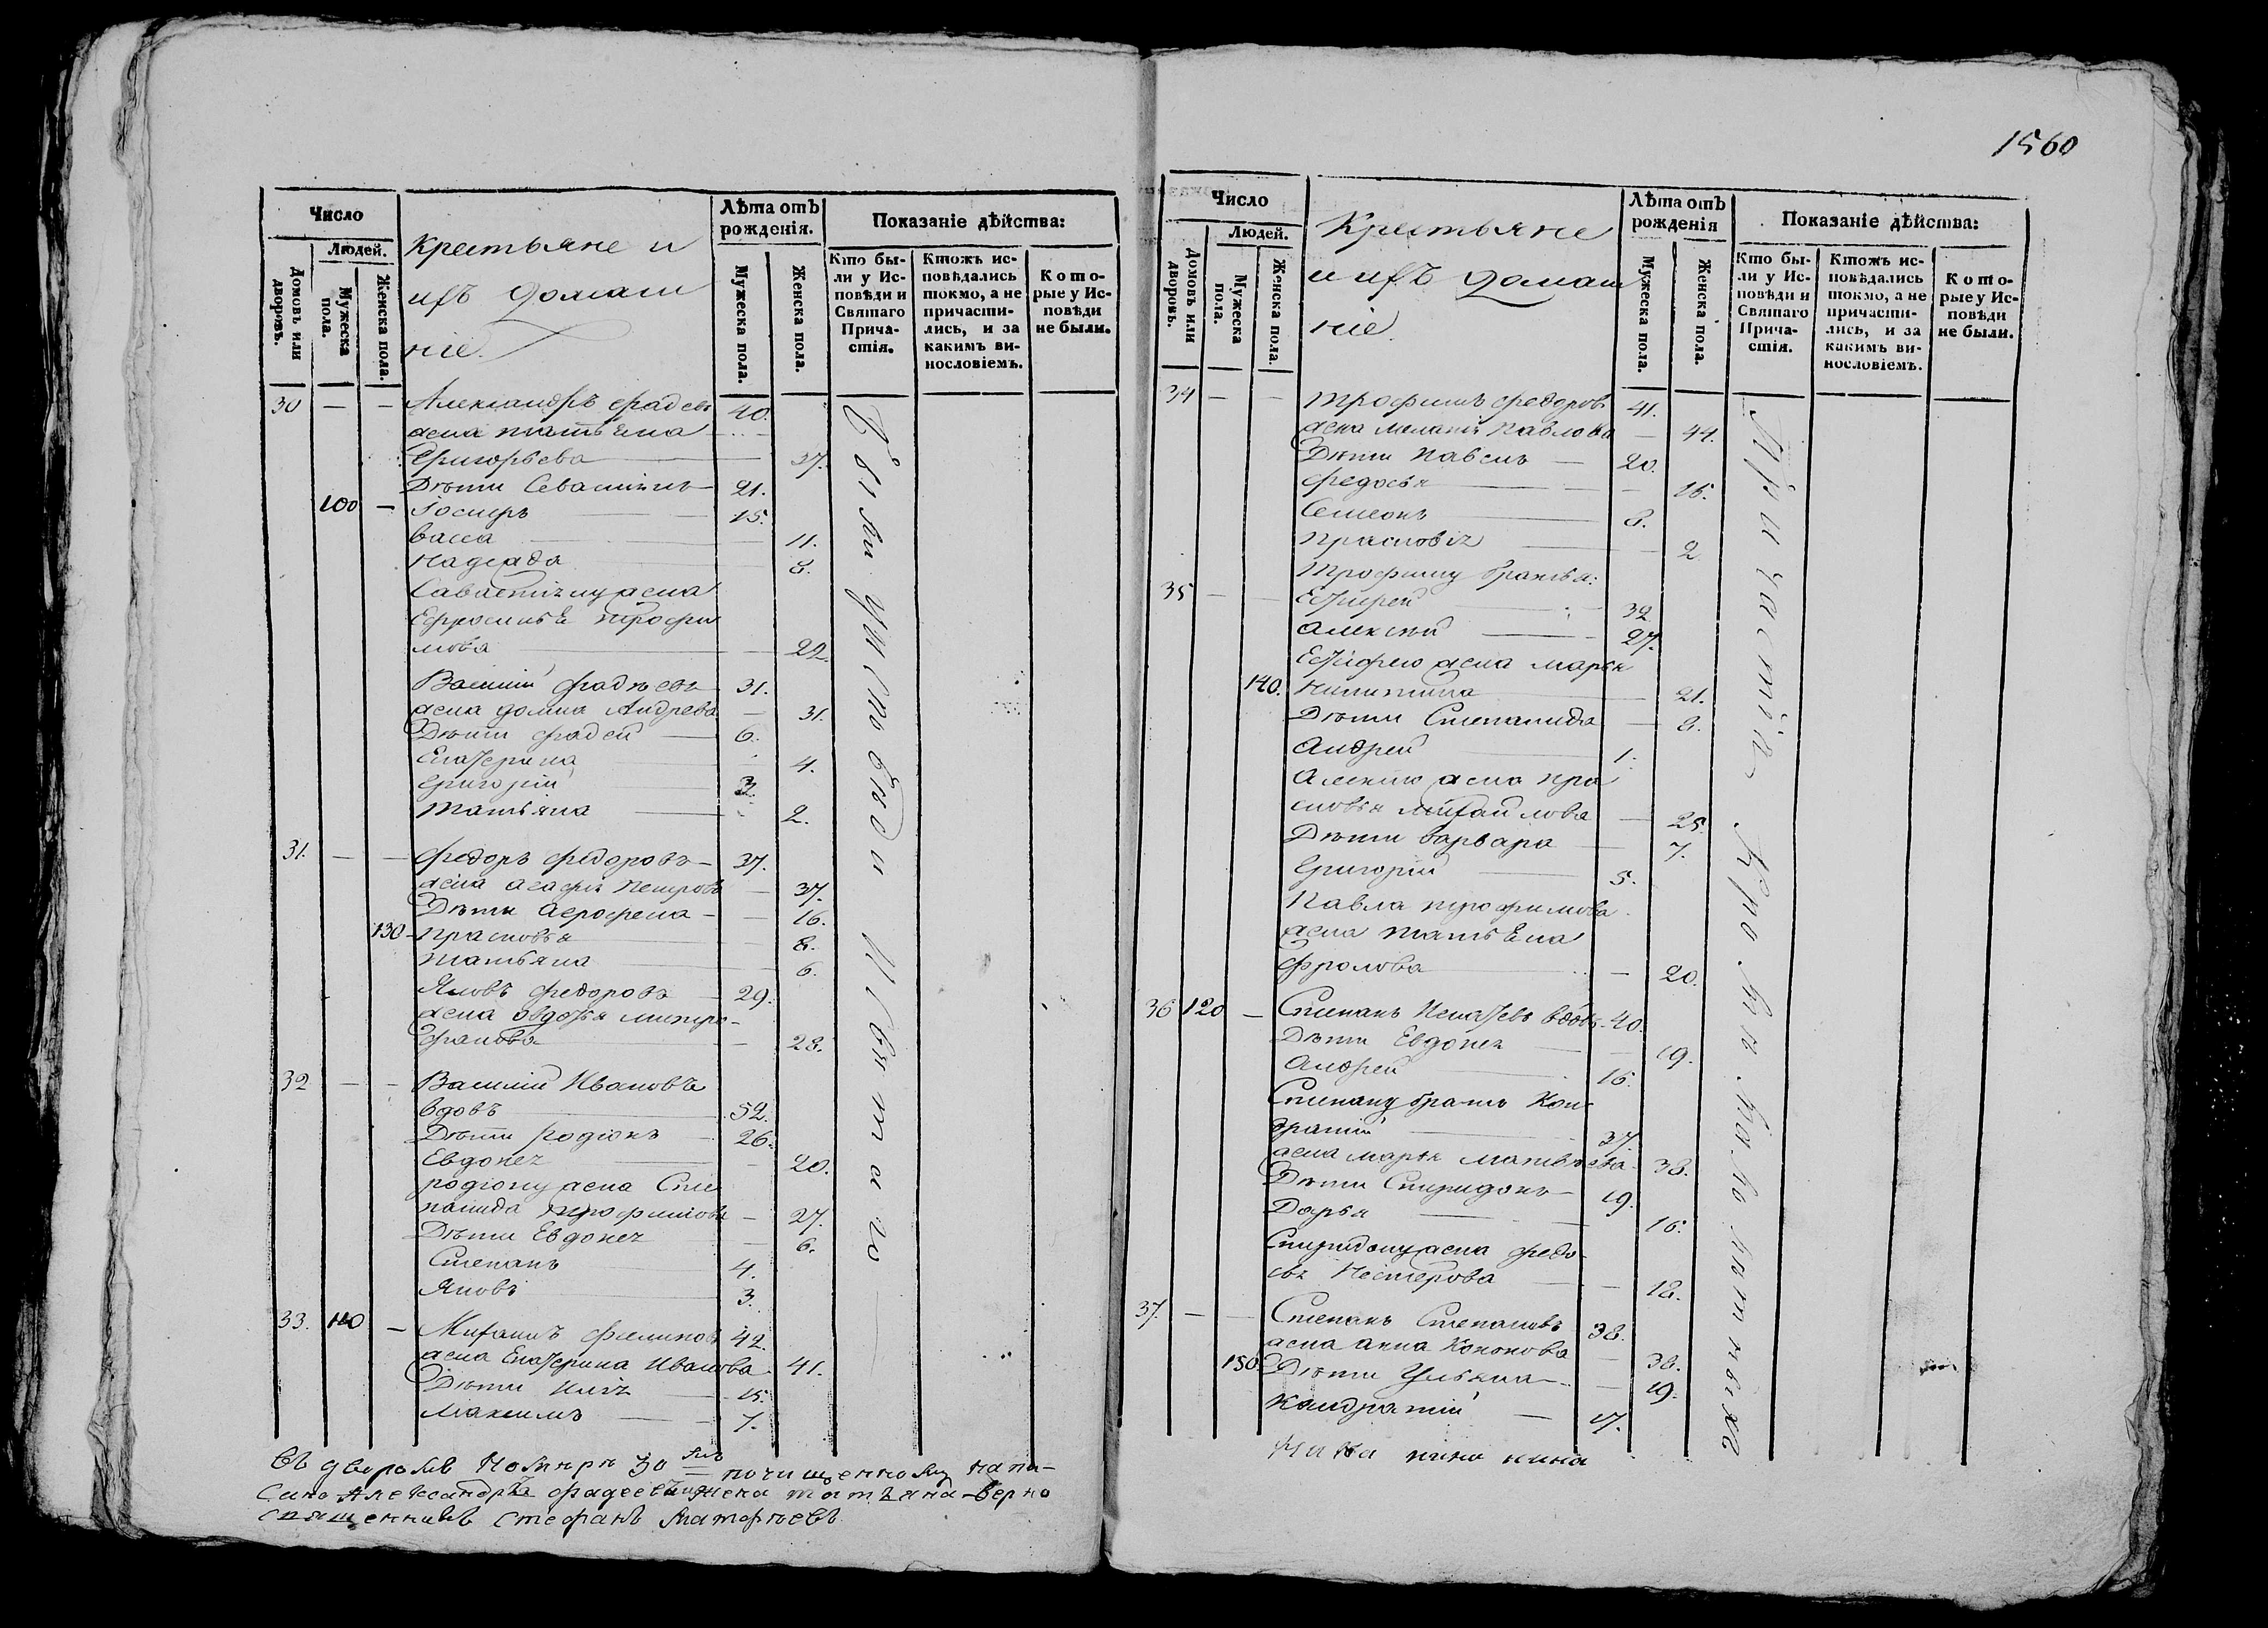 1560
Число
Людей.
Домовъ или дворовъ.
Мужеска пола.
Женска пола.
Крестьяне и
ихъ домаш
ніе.
Лѣта отъ рожденія.
Мужеска пола.
Женска пола.
Показаніе дѣйства:
Кто были у Исповѣди и Святаго Причастія.
Ктожъ исповѣдались токмо, а не причастились, и за какимъ винословіемъ.
Которые у Исповѣди не были.
30 — — Александръ фадеевъ 40.
жена татьяна
Григорьева 37.
Дѣти Севастіянъ 21.
100 — Іосифъ 15.
васса 11.
Надежда 8.
Савастіяну жена
Ефросинья трофи
мова 22.
Василій фадѣевъ 31.
жена домна Андрева 31.
Дѣти фадей 6.
Екатерина 4.
Григорій 3.
татьяна 2.
31. — — федоръ федоровъ 37.
жена агафія Петрова 37.
Дѣти Агрофена 16.
130 прасковья 8.
татьяна 6.
Яковъ федоровъ 29.
жена овдотья митро-
фанова 28.
32 — — Василій Ивановъ
вдовъ 52.
Дѣти родіонъ 26.
Евдокея 20.
родіону жена Сте
панида трофимова 27.
Дѣти Евдокея 6.
Степанъ 4.
Яковъ 3.
33. 110 — Михаилъ филиповъ 42.
жена Екатерина Иванова 41.
Дѣти Илія 15.
Максимъ 7.
Были у исповѣди и святаго
Въ дворомъ Номеръ 30 мъ почищенному напи-
сано Александръ фадеевъ жена татьяна верно
священникъ Стефанъ Матфеевъ
Число
Людей.
Домовъ или дворовъ.
Мужеска пола.
Женска пола.
Крестьяне
и ихъ домаш
ніе.
Лѣта отъ рожденія
Мужеска пола.
Женска пола.
Показаніе дѣйства:
Кто были у Исповѣди и Святаго Причастія.
Ктожъ исповѣдались токмо, а не причастились, и за какимъ винословіемъ.
Которые у Исповѣди не были.
34 — — трофимъ федоровъ 41.
жена маланія Павлова 44.
Дѣти Павелъ 20.
федосья 16.
Семеонъ 8.
прасковія 2.
трофиму братья:
35 — — Евфирей 32
алексей 27.
Евфирею жена марья
140. Никитина 21.
Дѣти Степанида 8.
Андрей 1.
Алексѣю жена пра
сковья михайлова 25.
Дѣти варвара 7.
Григорій 5.
Павла трофимова
жена татьяна
фролова 20.
36 120 — Степанъ Игнатьевъ вдовъ 40.
Дѣти Евдокея 19.
Андрей 16.
Степану братъ Кон
дратій 37.
жена марья матвѣева 38.
Дѣти Спиридонъ 19.
Дарья 16.
Спиридону жена федо
сья Нестерова 18.
37. — — Степанъ Степановъ 38.
жена анна Кононова 38.
150. Дѣти Ульяна 19.
Кандратій 17.
Причастія кромѣ малолѣтныхъ